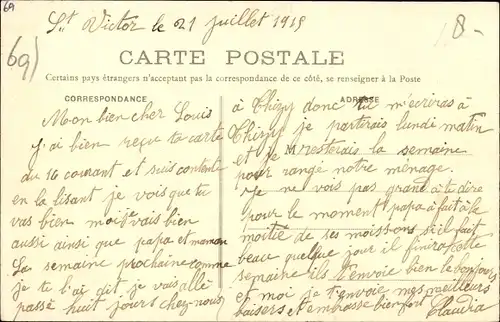 69
69)
St Victor le 21 juillet 1915
8-
CARTE POSTALE
Certains pays étrangers n'acceptent pas la correspondance de ce côté, se renseigner à la Poste
CORRESPONDANCE
Mon bien cher Louis
J'ai bien reçu ta carte
du 16 courant et suis contente
en la lisant je vois que tu
vas bien moi je vais bien
aussi ainsi que papa et maman
La semaine prochaine comme
je te l'ai dit je vais allé
passé huit jours chez-nous
ADRESSE
à Thizy donc tu m'écriras à
Thizy je partirais lundi matin
et je resterais la semaine
pour rangé notre ménage.
Je ne vois pas grand à te dire
pour le moment papa a fait à la
moitié de ses moissons s'il fait
beau quelque jour il finira cette
semaine ils t'envoie bien le bonjour
et moi je t'envoie mes meilleurs
baisers et t'embrasse bien fort Claudia